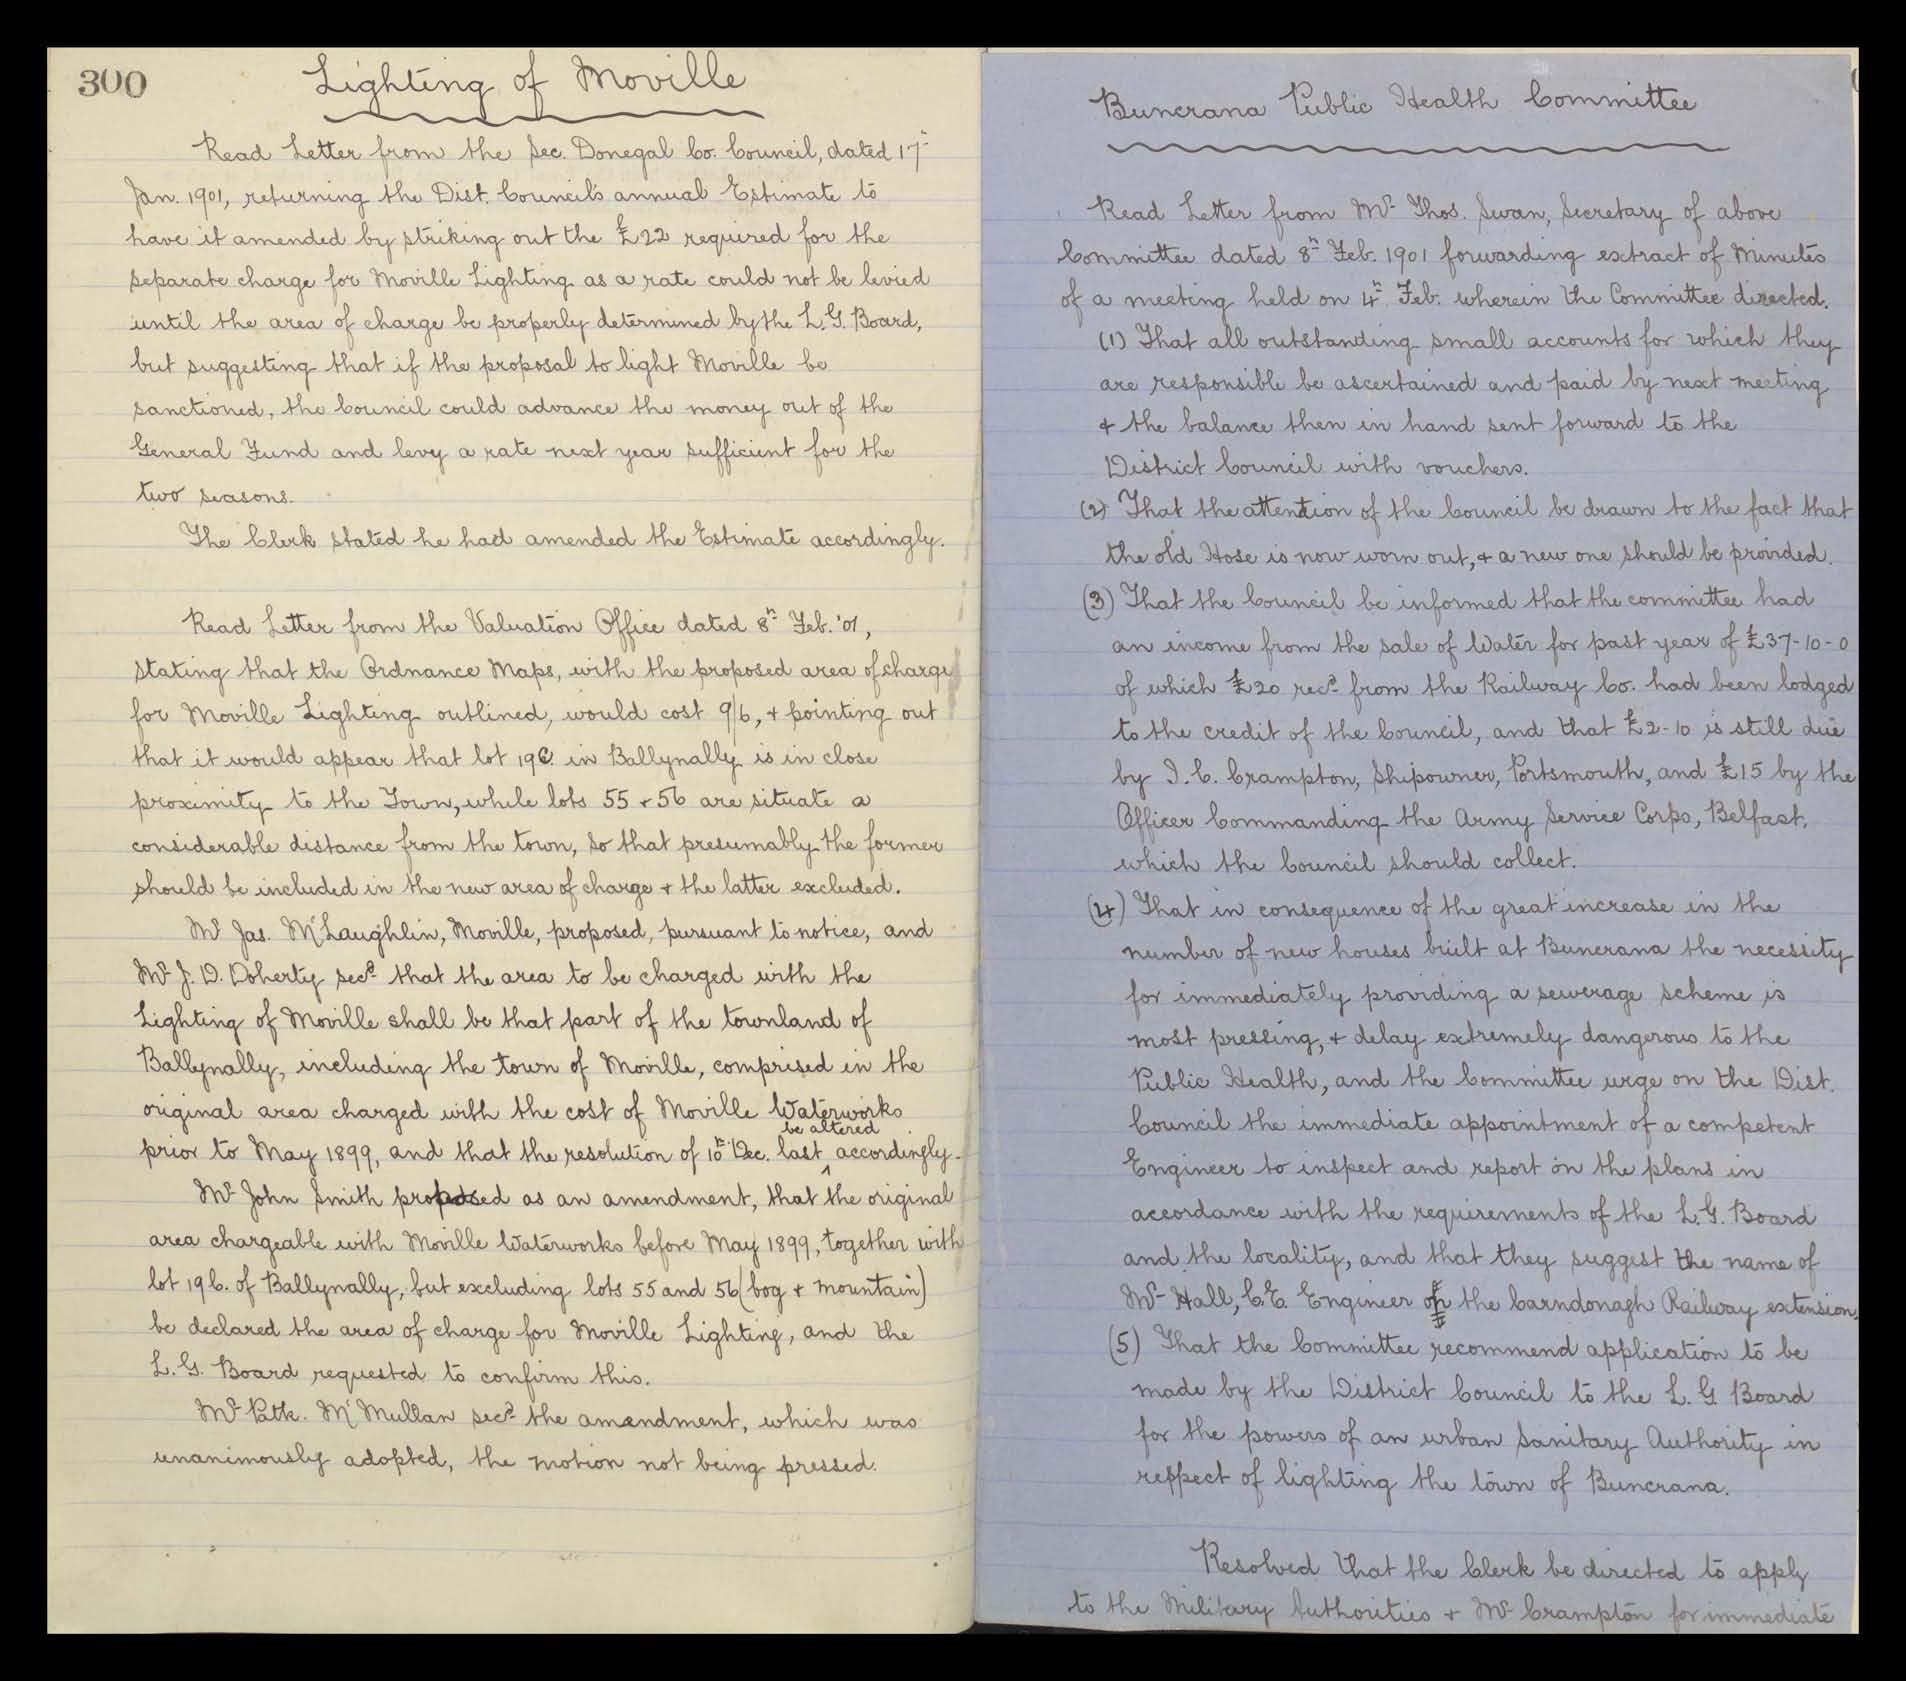 300
Lighting of Moville
Read Letter from the Sec. Donegal Co. Council, dated 17th
Jan. 1901, returning the Dist. Council's annual Estimate to
have it amended by striking out the £22 required for the
separate charge for Moville Lighting as a rate could not be levied
until the area of charge be properly determined by the L.G. Board,
but suggesting that if the proposal to light Moville be
sanctioned, the Council could advance the money out of the
General Fund and levy a rate next year sufficient for the
two seasons.
The Clerk stated he had amended the Estimate accordingly.
Read Letter from the Valuation Office dated 8th Feb. '01,
stating that the Ordnance Maps, with the proposed area of charge
for Moville Lighting outlined, would cost 9/6, + pointing out
that it would appear that lot 19C. in Ballynally is in close
proximity to the Town, while lots 55 + 56 are situate a
considerable distance from the town, so that presumably the former
should be included in the new area of charge + the latter excluded.
Mr Jas. McLaughlin, Moville, proposed, pursuant to notice, and
Mr J. D. Doherty secd that the area to be charged with the
Lighting of Moville shall be that part of the townland of
Ballynally, including the town of Moville, comprised in the
original area charged with the cost of Moville Waterworks
prior to May 1899, and that the resolution of 10th Dec. last be altered accordingly.
Mr John Smith proposed as an amendment, that the original
area chargeable with Moville Waterworks before May 1899, together with
lot 19C. of Ballynally, but excluding lots 55 and 56 (bog + mountain)
be declared the area of charge for Moville Lighting, and the
L.G. Board requested to confirm this.
Mr Patk. McMullan secd the amendment, which was
unanimously adopted, the motion not being pressed.
Buncrana Public Health Committee
Read Letter from Mr Thos. Swan, Secretary of above
Committee dated 8th Feb. 1901 forwarding extract of Minutes
of a meeting held on 4th Feb. wherein the Committee directed.
(1) That all outstanding small accounts for which they
are responsible be ascertained and paid by next meeting
+ the balance then in hand sent forward to the
District Council with vouchers.
(2) That the attention of the Council be drawn to the fact that
the old Hose is now worn out, + a new one should be provided.
(3) That the Council be informed that the committee had
an income from the sale of Water for past year of £37-10-0
of which £20 recd from the Railway Co. had been lodged
to the credit of the Council, and that £2-10 is still due
by I. C. Crampton, Shipowner, Portsmouth, and £15 by the
Officer Commanding the Army Service Corps, Belfast,
which the Council should collect.
(4) That in consequence of the great increase in the
number of new houses built at Buncrana the necessity
for immediately providing a sewerage scheme is
most pressing, + delay extremely dangerous to the
Public Health, and the Committee urge on the Dist.
Council the immediate appointment of a competent
Engineer to inspect and report on the plans in
accordance with the requirements of the L.G. Board
and the locality, and that they suggest the name of
Mr Hall, C.E. Engineer of the Carndonagh Railway extension,
(5) That the Committee recommend application to be
made by the District Council to the L. G Board
for the powers of an urban Sanitary Authority in
respect of lighting the town of Buncrana.
Resolved that the Clerk be directed to apply
to the Military Authorities + Mr Crampton for immediate